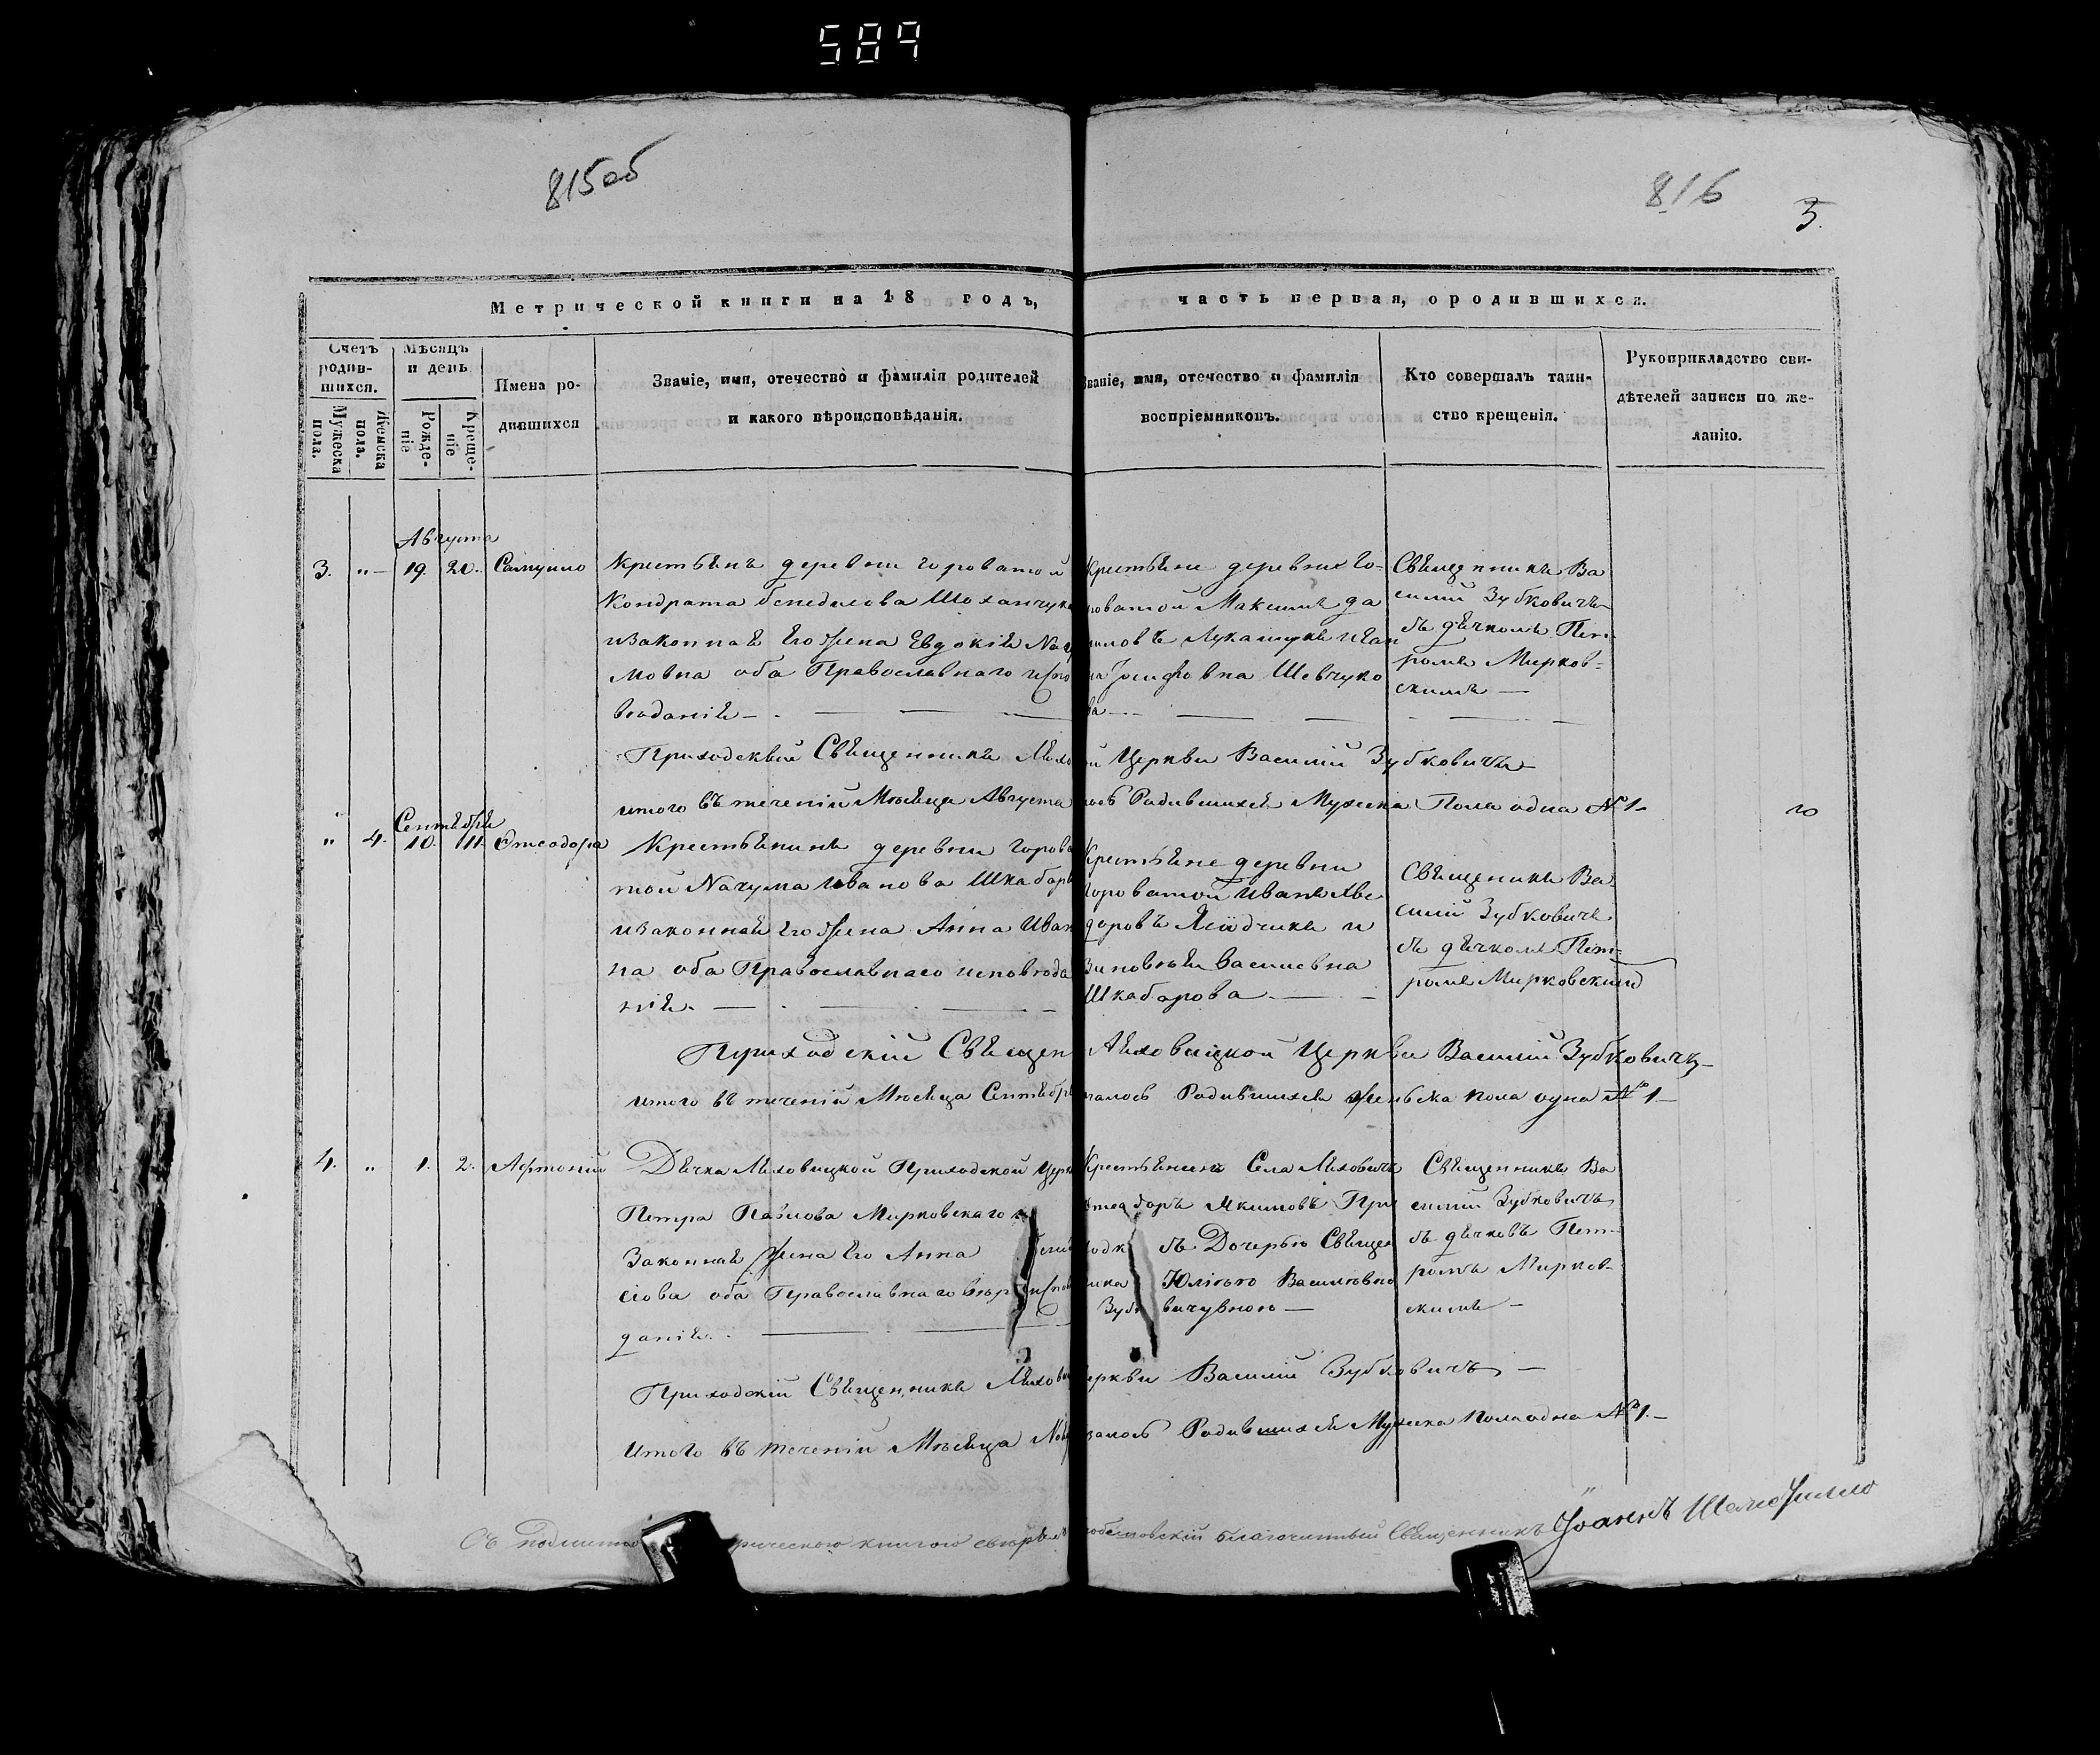 589
815об
816
5.
Метрической книги на 18 годъ, часть первая, о родившихся.
Счетъ родив-
шихся.
Мужеска пола.
Женска пола.
Мѣсяцъ и день
Рожде-
ніе
Креще-
ніе
Имена ро-
дившихся
Званіе, имя, отечество и фамилія родителей
и какого вѣроисповѣданія.
Званіе, имя, отечество и фамилія
воспріемниковъ.
Кто совершалъ таин-
ство крещенія.
Рукоприкладство сви-
дѣтелей записи по же-
ланію.
Августа
3. „ 19. 20. Самуило
Крестьянъ деревни Гороватой
Кондрата
изаконная его жена Евдокія
мовна оба Православнаго испо
веданія
Крестьяне деревни Го-
роватой Максимъ да
ниловъ Лукашукъ иван
на Шевчуко
ва
Священникъ Ва
силий Зубковичъ
съ дячкомъ Пет-
ромъ Мирков-
скимъ
Приходскій Священникъ Ляхо й Церкви Василій Зубковичъ
итого въ теченій Мѣсяца Августа лось Родившихся Мужеска Пола одна №1
Сентября
„ 4. 10. 11. Ѳтеодора
Крестьянинъ деревни Горова
той Наума Иванова Шкабар
изаконная его жена Анна Иван
на оба Православнаго исповѣда
нія.
Крестьяне деревни
Гороватой Иванъ Хве
доровъ и
Зиновѣя Василевна
Шкабарова
Священикъ Ва
силій Зубковичъ
съ дячкомъ Пет-
ромъ Мирковскимъ
Приходскій Священ Ляховицкой Церкви Василій Зубковичъ
итого въ теченій Мѣсяца Сентябр талось Родившихся Женьска пола одна № 1
4. „ 1. 2. Афтоній
Дячка Ляховицкой Приходской Церк
Петра Павлова Мирковскаго и
Законная жена Его Анна
сіова оба Православнаго вѣро испов
данія.
Крестьянинъ Села Ляховичъ
Ѳтеодоръ Якимовъ При
ходк съ Дочерью Священ
ника Юліею Василѣвно
Зуб вичувною
Священникъ Ва
силій Зубковичъ
съ дячковъ Пет-
ромъ Мирков-
скимъ
Приходскій Священникъ Ляхови еркви Василій Зубковичъ
Итого въ теченій Мѣсяца залось Родившихся Мужеска Пола одна №1.
Съ рическою книгою свѣрялъ благочинный Священникъ Іоаннъ